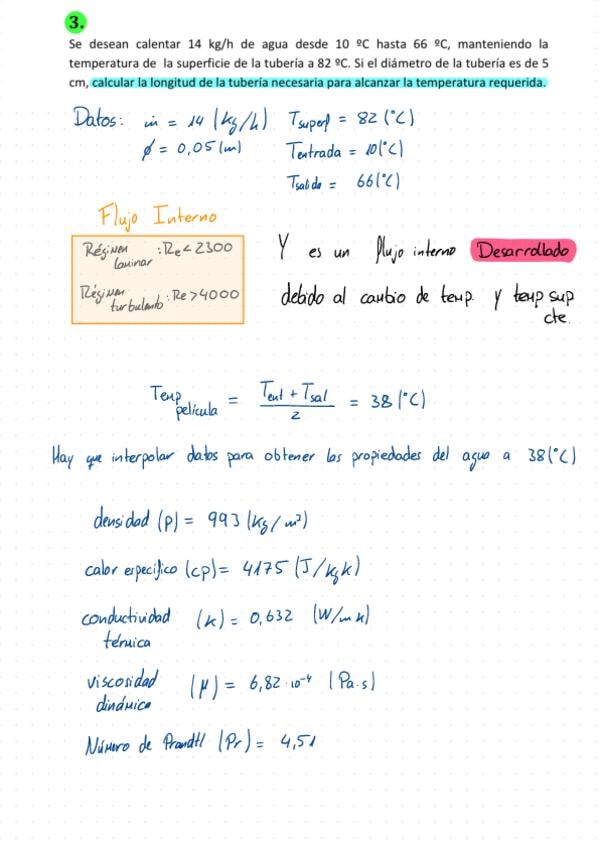 3.
Se desean calentar 14 kg/h de agua desde 10 ºC hasta 66 ºC, manteniendo la
temperatura de la superficie de la tubería a 82 ºC. Si el diámetro de la tubería es de 5
cm, calcular la longitud de la tubería necesaria para alcanzar la temperatura requerida.
Datos: ṁ = 14 (kg/h) Tsuperf = 82 (°C)
φ = 0,05 (m) Tentrada = 10(°C)
Tsalida = 66(°C)
Flujo Interno
Régimen laminar : Re < 2300
Régimen turbulento : Re > 4000
Y es un flujo interno Desarrollado
debido al cambio de temp. y temp sup
cte.
Temp película = (Tent + Tsal) / 2 = 38 (°C)
Hay que interpolar datos para obtener las propiedades del agua a 38(°C)
densidad (ρ) = 993 (kg/m³)
calor específico (cp) = 4175 (J/kg k)
conductividad térmica (k) = 0,632 (W/m k)
viscosidad dinámica (μ) = 6,82·10⁻⁴ (Pa·s)
Número de Prandtl (Pr) = 4,51